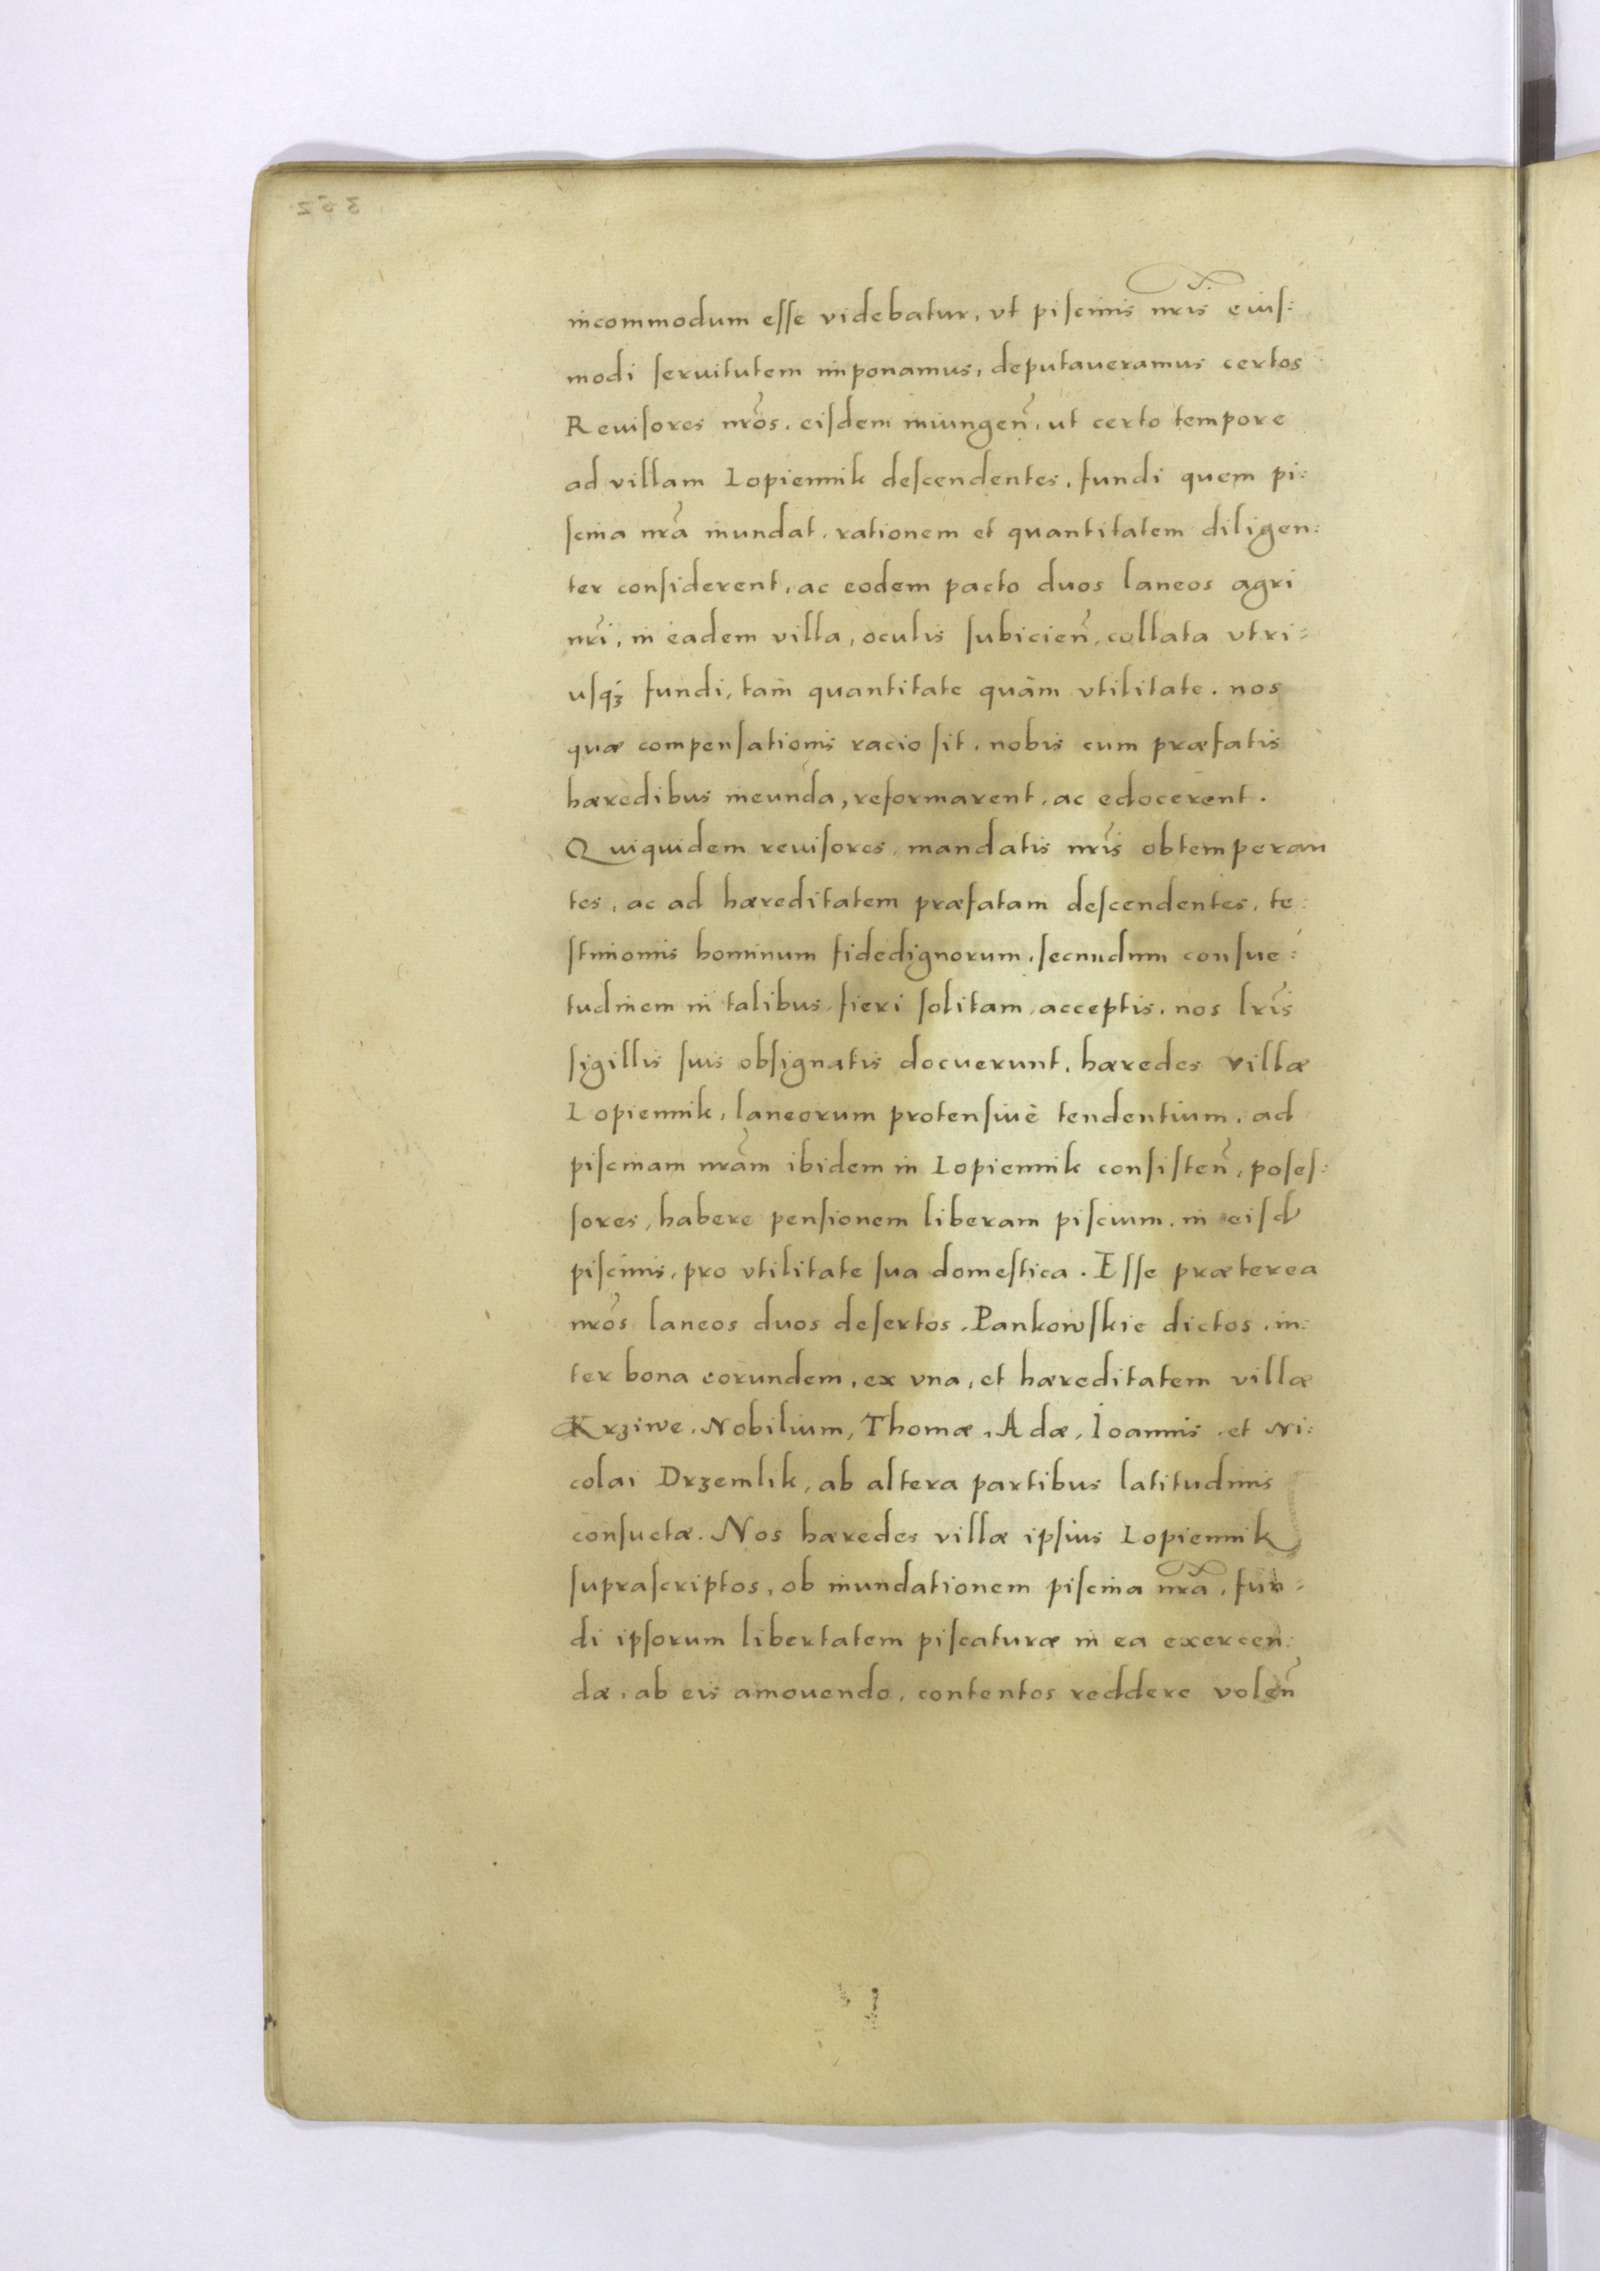 incommodum esse videbatur, vt piscinis nr̃is eius:
modi seruitutem imponamus, deputaueramus certos
Reuisores nr̃os. eisdem iniungen̄. ut certo tempore
ad villam Lopiennik descendentes, fundi quem pi:
scina nr̃a inundat, rationem et quantitatem diligen:
ter considerent, ac eodem pacto duos laneos agri
nr̃i, in eadem villa, oculis subicien̄, collata vtri=
usq̃ʒ fundi, tam quantitate quàm vtilitate. nos
quæ compensationis racio sit, nobis cum præfatis
hæredibus ineunda, reformarent, ac edocerent.
Quiquidem reuisores, mandatis nr̃is obtemperan
tes, ac ad hæreditatem præfatam descendentes, te:
stimoniis hominum fidedignorum, secundum consue:
tudinem in talibus fieri solitam, acceptis, nos lr̃is
sigillis suis obsignatis docuerunt, hæredes villæ
Lopiennik, laneorum protensiuè tendentium, ad
piscinam nr̃am ibidem in Lopiennik consisten̄, poses:
sores, habere pensionem liberam piscium, in eisd
piscinis, pro vtilitate sua domestica. Esse præterea
nr̃os laneos duos desertos, Pankowskie dictos, in:
ter bona eorundem, ex vna, et hæreditatem villæ
Krziwe, Nobilium, Thomæ, Adæ, Ioannis, et Ni:
colai Drzemlik, ab altera partibus latitudinis
consuetæ. Nos hæredes villæ ipsius Lopiennik
suprascriptos, ob inundationem piscina nr̃a, fun=
di ipsorum libertatem piscaturæ in ea exercen:
dæ, ab eis amouendo, contentos reddere volen̄